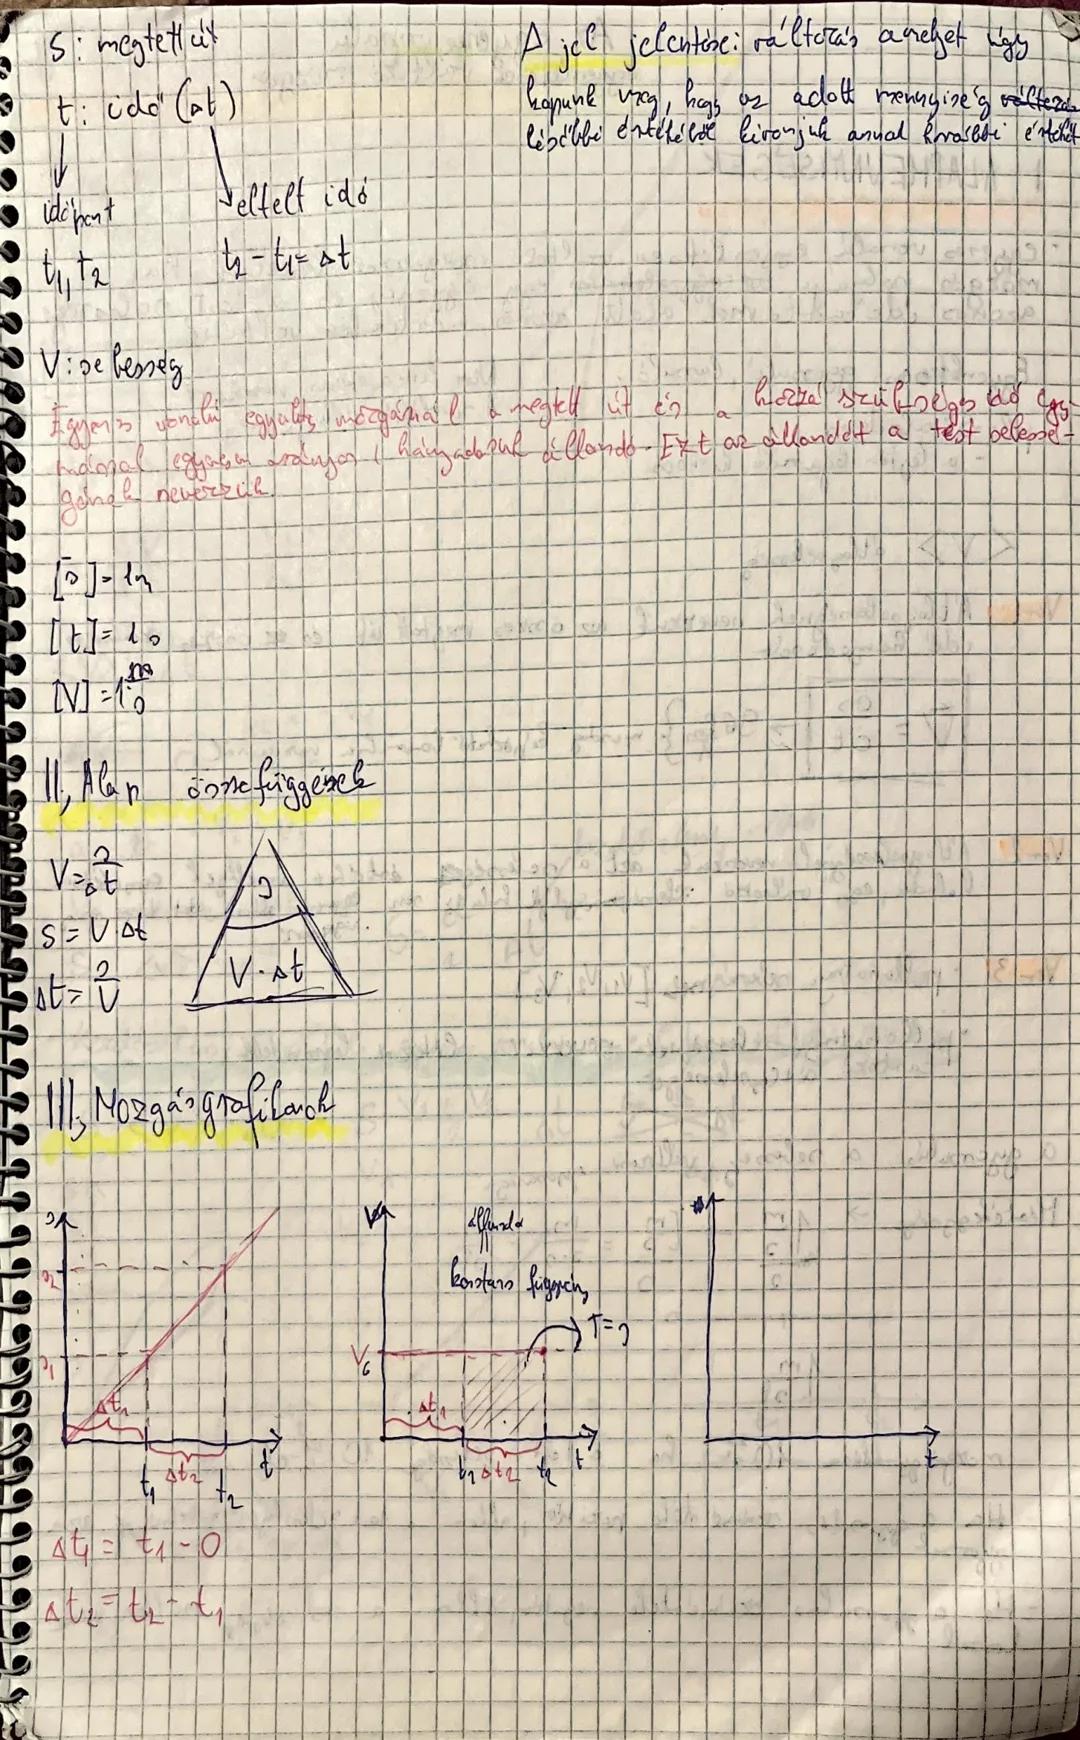 s: megtett út
t: idő (Δt)
időpont
eltelt idő
t₁, t₂
t₂ - t₁ = Δt
Δ jel jelentése: változás amelyet úgy
kapunk meg, hogy az adott mennyiség
későbbi értékéből kivonjuk annak korábbi értékét
V: sebesség
Egyenes vonalú egyenletes mozgásnál a megtett út és a hozzá szükséges idő egy-
mással egyenesen arányos, hányadosuk állandó. Ezt az állandót a test sebessé-
gének nevezzük.
[s] = 1m
[t] = 1s
[V] = 1 m/s
II, Alap összefüggések
V = s/Δt
s = V·Δt
Δt = s/V
s
V·Δt
III, Mozgásgrafikonok
s
s₂
s₁
Δt₁
t₁ Δt₂ t₂ t
V
állandó
konstans függvény
T = s
V₀
Δt₁
t₁ Δt₂ t₂ t
t
Δt₁ = t₁ - 0
Δt₂ = t₂ - t₁